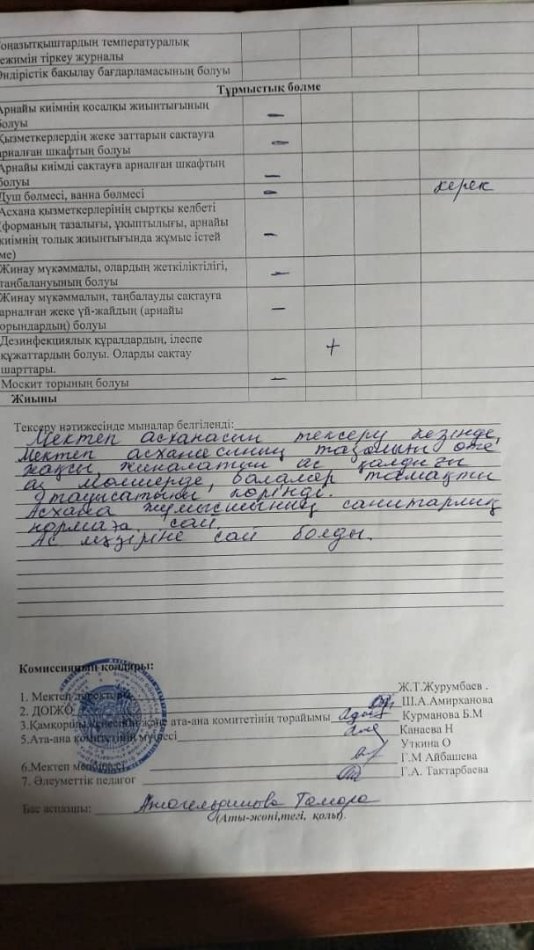 Тоңазытқыштардың температуралық
режимін тіркеу журналы
Өндірістік бақылау бағдарламасының болуы
Тұрмыстық бөлме
Арнайы киімнің қосалқы жиынтығының
болуы –
Қызметкерлердің жеке заттарын сақтауға
арналған шкафтың болуы –
Арнайы киімді сақтауға арналған шкафтың
болуы –
Душ бөлмесі, ванна бөлмесі – керек
Асхана қызметкерлерінің сыртқы келбеті
(форманың тазалығы, ұқыптылығы, арнайы
киімнің толық жиынтығында жұмыс істей
ме) –
Жинау мүкәммалы, олардың жеткіліктілігі,
таңбалануының болуы –
Жинау мүкәммалын, таңбалауды сақтауға
арналған жеке үй-жайдың (арнайы
орындардың) болуы –
Дезинфекциялық құралдардың, ілеспе
құжаттардың болуы. Оларды сақтау +
шарттары.
Москит торының болуы –
Жиыны
Тексеру нәтижесінде мыналар белгіленді:
Мектеп асханасын тексеру кезінде,
Мектеп асханасының тазалығы өте
жақсы, жиналатын ас қалдығы
аз мөлшерде, балалар тамақты
тауысатыны көрінді.
Асхана жұмысының санитарлық
нормаға сай.
Ас мәзіріне сай болды.
Комиссияның қолдары:
1. Мектеп директоры Ж.Т.Журумбаев .
2. ДОІЖО Ш.А.Амирханова
3.Қамқоршы кеңесінің және ата-ана комитетінің төрайымы Курманова Б.М
5.Ата-ана комитетінің мүшесі Канаева Н
Уткина О
6.Мектеп мейірбикесі Г.М Айбашева
7. Әлеуметтік педагог Г.А. Тактарбаева
Бас аспазшы: Тамара
(Аты-жөні,тегі, қолы).